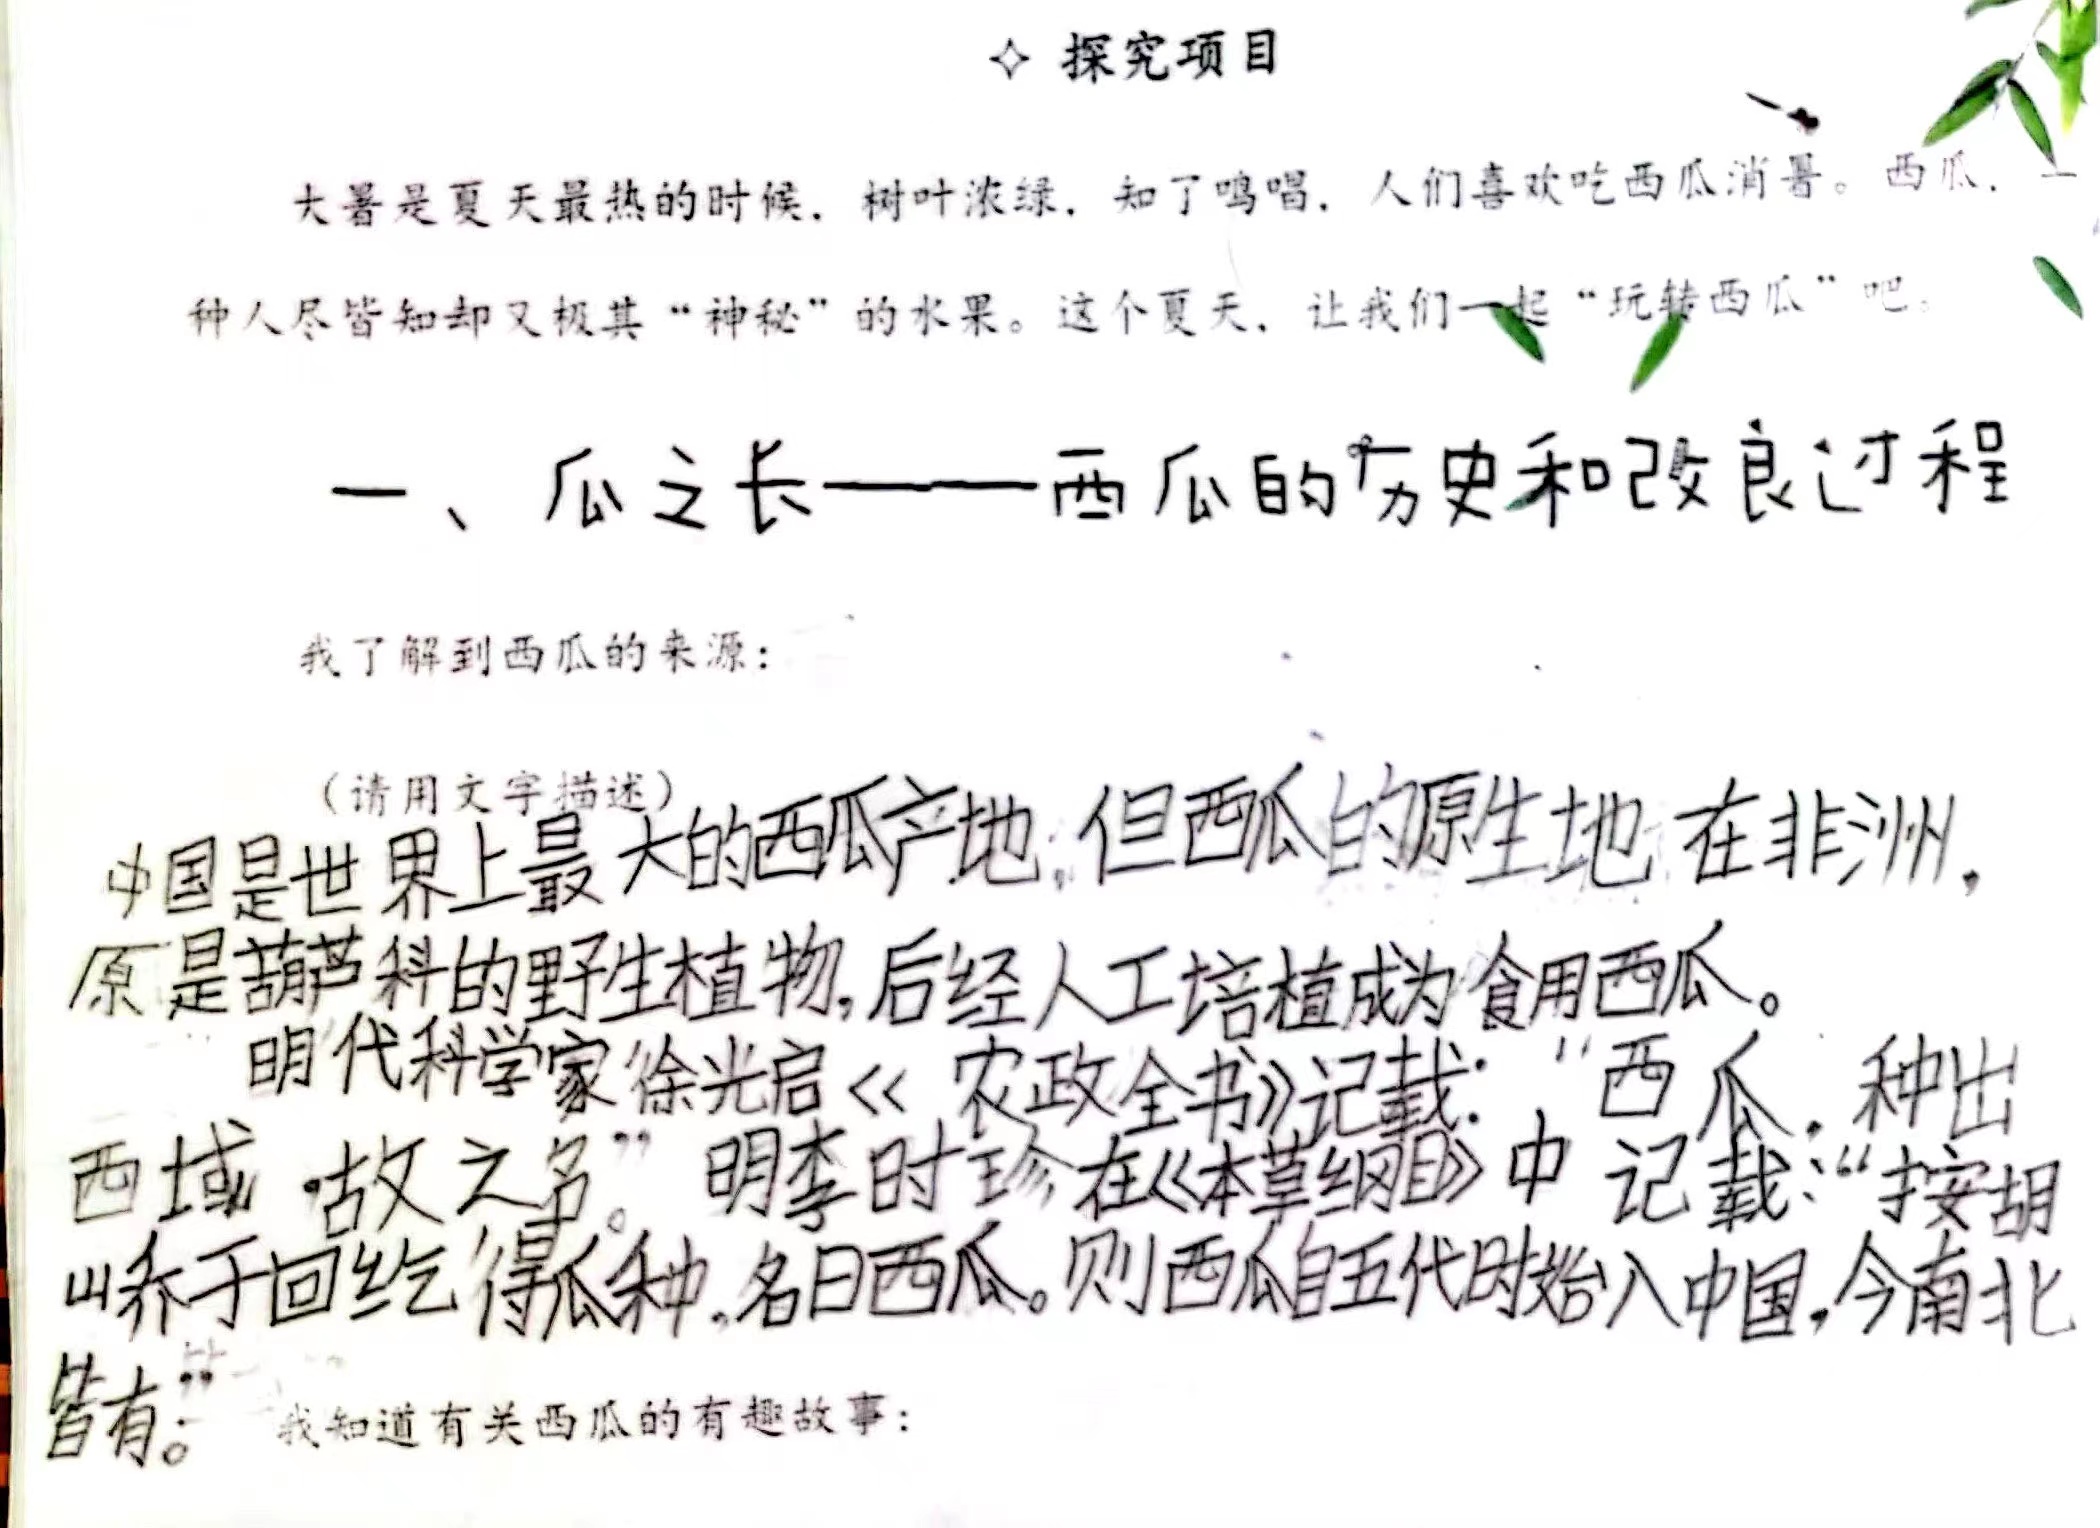 ✧ 探究项目
大暑是夏天最热的时候，树叶浓绿，知了鸣唱，人们喜欢吃西瓜消暑。西瓜，一
种人尽皆知却又极其“神秘”的水果。这个夏天，让我们一起“玩转西瓜”吧。
一、瓜之长——西瓜的历史和改良过程
我了解到西瓜的来源：
（请用文字描述）
中国是世界上最大的西瓜产地，但西瓜的原生地在非洲，
原是葫芦科的野生植物，后经人工培植成为食用西瓜。
明代科学家徐光启《农政全书》记载：“西瓜，种出
西域，故之名”。明李时珍在《本草纲目》中记载：“按胡
山乔于回纥得瓜种，名曰西瓜。则西瓜自五代时始入中国，今南北
皆有。”
我知道有关西瓜的有趣故事：